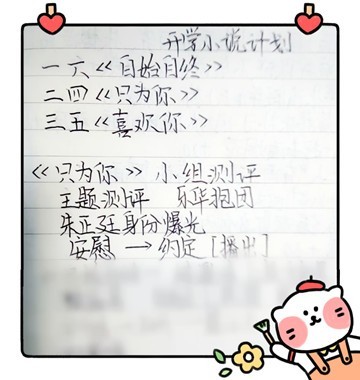 开学小说计划
一六《自始自终》
二四《只为你》
三五《喜欢你》
《只为你》小组测评
主题测评 乐华抱团
朱正廷身份爆光
安慰→约定[播出]